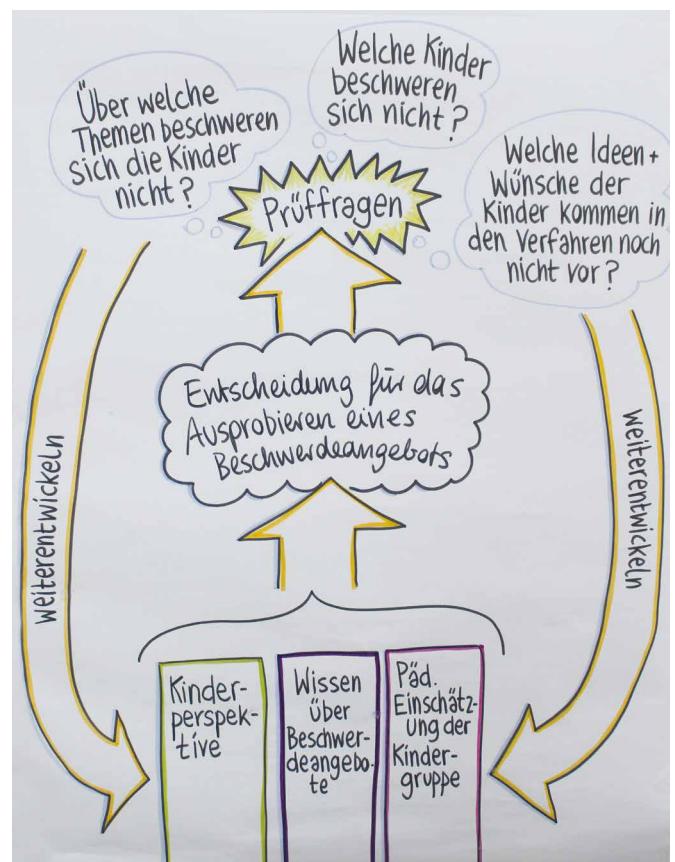 Welche Kinder
beschweren
sich nicht?
Über welche
Themen beschweren
sich die Kinder
nicht?
Welche Ideen +
Wünsche der
Kinder kommen in
den Verfahren noch
nicht vor?
Prüffragen
Entscheidung für das
Ausprobieren eines
Beschwerdeangebots
Weiterentwickeln
Weiterentwickeln
Kinder-
perspek-
tive
Wissen
über
Beschwer-
deangebo-
te
Päd.
Einschätz-
ung der
Kinder-
gruppe